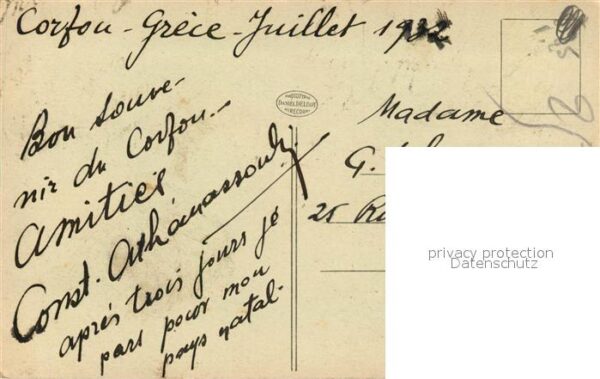 Corfou - Grèce - Juillet 1932
Bon souve-
nir du Corfou -
Amitiés
Const. Athanassoulis
après trois jours je
pars pour mon
pays natal.
Madame
G.
25
privacy protection
Datenschutz